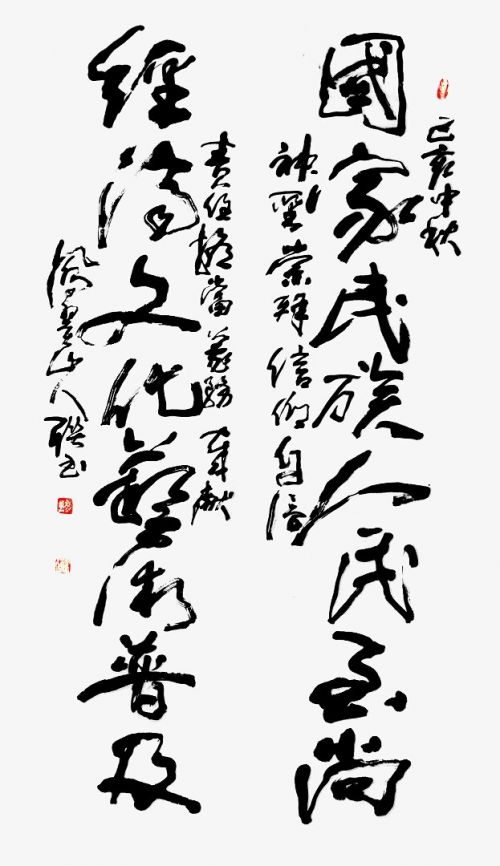 己亥中秋
國家民族人民至尚
神聖崇拜信仰自
責任擔當義務奉獻
經濟文化藝術普及
山人聯書